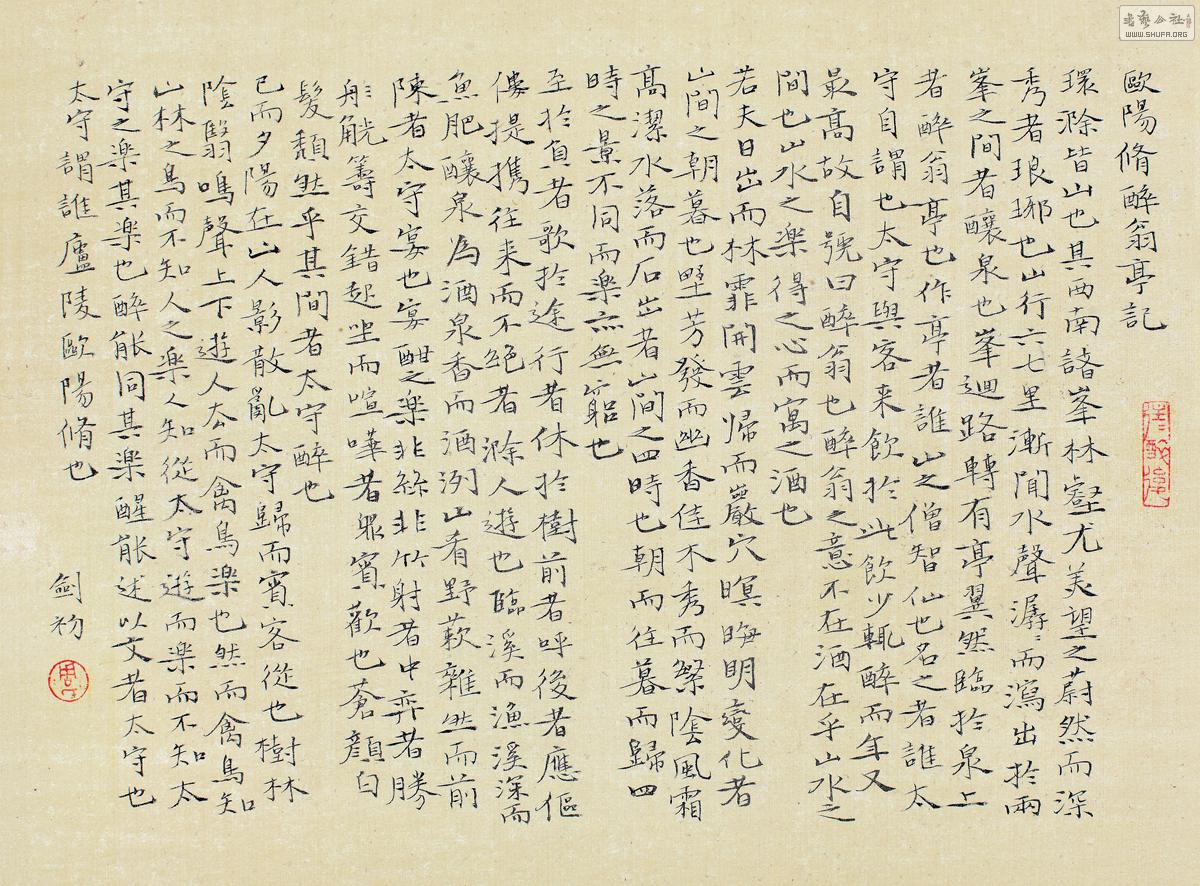 歐陽脩醉翁亭記
環滁皆山也其西南諸峯林壑尤美望之蔚然而深
秀者琅琊也山行六七里漸聞水聲潺〻而瀉出於兩
峯之間者釀泉也峯迴路轉有亭翼然臨於泉上
者醉翁亭也作亭者誰山之僧智仙也名之者誰太
守自謂也太守與客来飲於此飲少輒醉而年又
最高故自號曰醉翁也醉翁之意不在酒在乎山水之
間也山水之楽得之心而寓之酒也
若夫日出而林霏開雲歸而巖穴暝晦明變化者
山間之朝暮也野芳發而幽香佳木秀而繁陰風霜
高潔水落而石出者山間之四時也朝而往暮而歸四
時之景不同而楽亦無窮也
至於負者歌於途行者休於樹前者呼後者應傴
僂提攜往来而不絕者滁人遊也臨溪而漁溪深而
魚肥釀泉為酒泉香而酒洌山肴野蔌雜然而前
陳者太守宴也宴酣之楽非絲非竹射者中弈者勝
觥籌交錯起坐而喧嘩者眾賓歡也蒼顏白
髮頹然乎其間者太守醉也
已而夕陽在山人影散亂太守歸而賓客從也樹林
陰翳鳴聲上下遊人去而禽鳥楽也然而禽鳥知
山林之鳥而不知人之楽人知從太守遊而楽而不知太
守之楽其楽也醉能同其楽醒能述以文者太守也
太守謂誰廬陵歐陽脩也
劍初
書藝公社
WWW.SHUFA.ORG